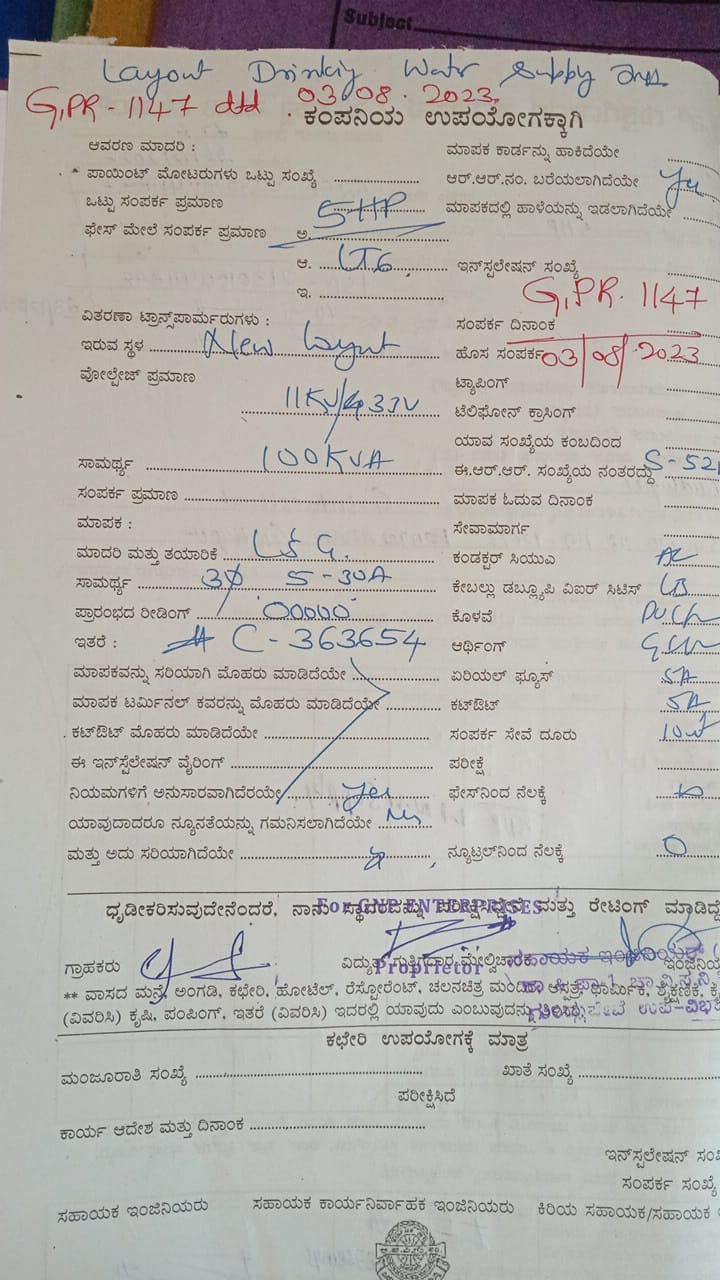 Subject
Layout Drinking Water Supply
G,PR - 1147 dtd 03.08.2023.
ಕಂಪನಿಯ ಉಪಯೋಗಕ್ಕಾಗಿ
ಆವರಣ ಮಾದರಿ : ಮಾಪಕ ಕಾರ್ಡನ್ನು ಹಾಕಿದೆಯೇ
ಪಾಯಿಂಟ್ ಮೋಟರುಗಳು ಒಟ್ಟು ಸಂಖ್ಯೆ ಆರ್.ಆರ್.ನಂ. ಬರೆಯಲಾಗಿದೆಯೇ Yes
ಒಟ್ಟು ಸಂಪರ್ಕ ಪ್ರಮಾಣ 5HP ಮಾಪಕದಲ್ಲಿ ಹಾಳೆಯನ್ನು ಇಡಲಾಗಿದೆಯೇ
ಫೇಸ್ ಮೇಲೆ ಸಂಪರ್ಕ ಪ್ರಮಾಣ ಅ.
ಆ. LT6 ಇನ್‌ಸ್ಪಲೇಷನ್ ಸಂಖ್ಯೆ
ಇ. G,PR. 1147
ವಿತರಣಾ ಟ್ರಾನ್ಸ್‌ಪಾರ್ಮರುಗಳು : ಸಂಪರ್ಕ ದಿನಾಂಕ
ಇರುವ ಸ್ಥಳ New Layout ಹೊಸ ಸಂಪರ್ಕ 03/08/2023
ವೋಲ್ಟೇಜ್ ಪ್ರಮಾಣ ಟ್ಯಾಪಿಂಗ್
11KV/433V ಟೆಲಿಫೋನ್ ಕ್ರಾಸಿಂಗ್
ಯಾವ ಸಂಖ್ಯೆಯ ಕಂಬದಿಂದ
ಸಾಮರ್ಥ್ಯ 100KVA ಈ.ಆರ್.ಆರ್. ಸಂಖ್ಯೆಯ ನಂತರದ್ದು S-52
ಸಂಪರ್ಕ ಪ್ರಮಾಣ ಮಾಪಕ ಓದುವ ದಿನಾಂಕ
ಮಾಪಕ : ಸೇವಾಮಾರ್ಗ
ಮಾದರಿ ಮತ್ತು ತಯಾರಿಕೆ L&G. ಕಂಡಕ್ಟರ್ ಸಿಯುಎ
ಸಾಮರ್ಥ್ಯ 3Ø 5-30A ಕೇಬಲ್ಲು ಡಬ್ಲ್ಯೂಪಿ ವಿಐರ್ ಸಿಟಿಸ್
ಪ್ರಾರಂಭದ ರೀಡಿಂಗ್ 00000 ಕೊಳವೆ
ಇತರೆ : C-363654 ಆರ್ಥಿಂಗ್
ಮಾಪಕವನ್ನು ಸರಿಯಾಗಿ ಮೊಹರು ಮಾಡಿದೆಯೇ ಏರಿಯಲ್ ಫ್ಯೂಸ್ 5A
ಮಾಪಕ ಟರ್ಮಿನಲ್ ಕವರನ್ನು ಮೊಹರು ಮಾಡಿದೆಯೇ ಕಟ್‌ಔಟ್ 5A
ಕಟ್‌ಔಟ್ ಮೊಹರು ಮಾಡಿದೆಯೇ ಸಂಪರ್ಕ ಸೇವೆ ದೂರು
ಈ ಇನ್‌ಸ್ಪೆಲೇಷನ್ ವೈರಿಂಗ್ ಪರೀಕ್ಷೆ
ನಿಯಮಗಳಿಗೆ ಅನುಸಾರವಾಗಿದೆರಯೇ Yes ಫೇಸ್‌ನಿಂದ ನೆಲಕ್ಕೆ
ಯಾವುದಾದರೂ ನ್ಯೂನತೆಯನ್ನು ಗಮನಿಸಲಾಗಿದೆಯೇ No
ಮತ್ತು ಅದು ಸರಿಯಾಗಿದೆಯೇ ನ್ಯೂಟ್ರಲ್‌ನಿಂದ ನೆಲಕ್ಕೆ 0
ಧೃಡೀಕರಿಸುವುದೇನೆಂದರೆ, ನಾನು ಸ್ಥಾವರವನ್ನು ಪರೀಕ್ಷಿಸಿದ್ದೇನೆ ಮತ್ತು ರೇಟಿಂಗ್ ಮಾಡಿದ್ದೆ
For GNP ENTERPRISES
ಗ್ರಾಹಕರು ವಿದ್ಯುತ್ ಗುತ್ತಿಗೆದಾರ ಮೇಲ್ವಿಚಾರಕ ಇಂಜಿನಿಯ
Proprietor ಸಹಾಯಕ ಇಂಜಿನಿಯರ್
** ವಾಸದ ಮನೆ, ಅಂಗಡಿ, ಕಛೇರಿ, ಹೋಟೆಲ್, ರೆಸ್ಟೋರೆಂಟ್, ಚಲನಚಿತ್ರ ಮಂದಿರ ಆಸ್ಪತ್ರೆ, ಧಾರ್ಮಿಕ, ಶೈಕ್ಷಣಿಕ,
(ವಿವರಿಸಿ) ಕೃಷಿ, ಪಂಪಿಂಗ್, ಇತರೆ (ವಿವರಿಸಿ) ಇದರಲ್ಲಿ ಯಾವುದು ಎಂಬುವುದನ್ನು ತಿಳಿಸಿ
ಕಛೇರಿ ಉಪಯೋಗಕ್ಕೆ ಮಾತ್ರ
ಮಂಜೂರಾತಿ ಸಂಖ್ಯೆ ಖಾತೆ ಸಂಖ್ಯೆ
ಪರೀಕ್ಷಿಸಿದೆ
ಕಾರ್ಯ ಆದೇಶ ಮತ್ತು ದಿನಾಂಕ
ಇನ್‌ಸ್ಪಲೇಷನ್ ಸಂಖ
ಸಂಪರ್ಕ ಸಂಖ್ಯೆ
ಸಹಾಯಕ ಇಂಜಿನಿಯರು ಸಹಾಯಕ ಕಾರ್ಯನಿರ್ವಾಹಕ ಇಂಜಿನಿಯರು ಕಿರಿಯ ಸಹಾಯಕ/ಸಹಾಯಕ